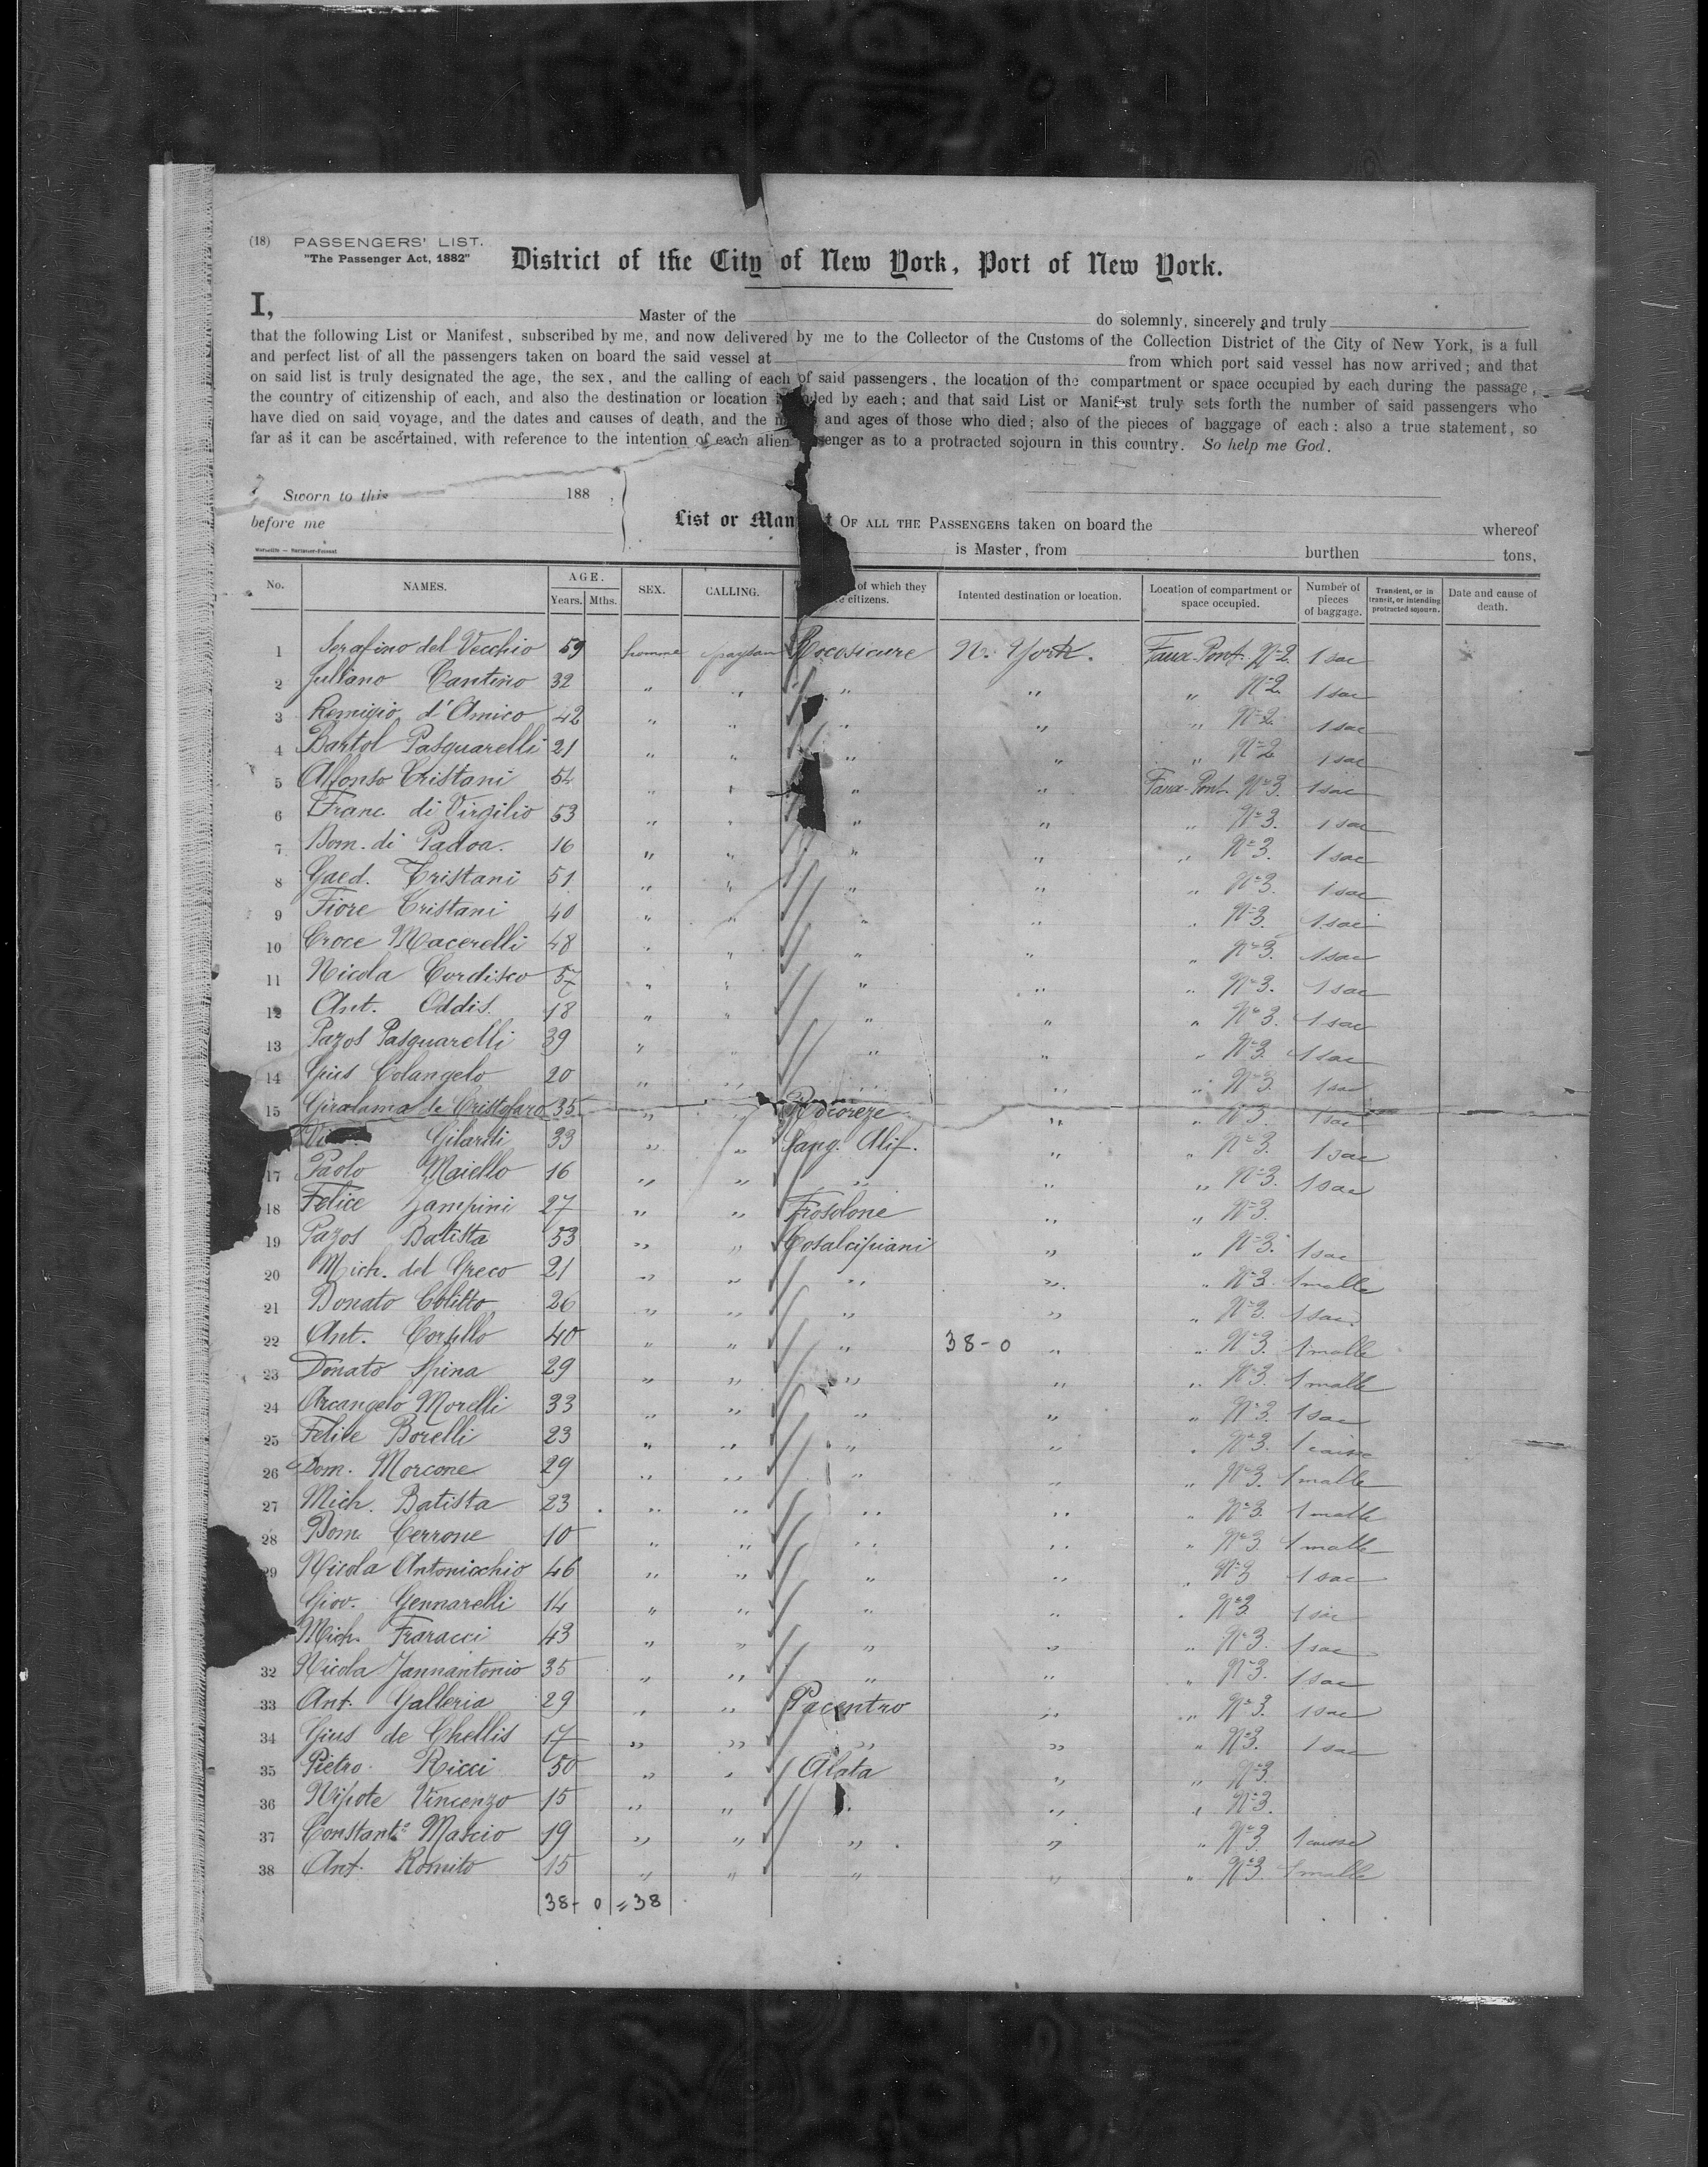 (18) PASSENGERS' LIST.
"The Passenger Act, 1882"
District of the City of New York, Port of New York.
I, Master of the do solemnly, sincerely and truly
that the following List or Manifest, subscribed by me, and now delivered by me to the Collector of the Customs of the Collection District of the City of New York, is a full
and perfect list of all the passengers taken on board the said vessel at from which port said vessel has now arrived; and that
on said list is truly designated the age, the sex, and the calling of each of said passengers, the location of the compartment or space occupied by each during the passage,
the country of citizenship of each, and also the destination or location by each; and that said List or Manifest truly sets forth the number of said passengers who
have died on said voyage, and the dates and causes of death, and the and ages of those who died; also of the pieces of baggage of each: also a true statement, so
far as it can be ascertained, with reference to the intention of each alien senger as to a protracted sojourn in this country. So help me God.
Sworn to this 188
before me
List or Man t OF ALL THE PASSENGERS taken on board the whereof
is Master, from burthen tons,
No. NAMES. AGE. Years. Mths. SEX. CALLING. of which they citizens. Intented destination or location. Location of compartment or space occupied. Number of pieces of baggage. Transient, or in transit, or intending protracted sojourn. Date and cause of death.
1 Serafino del Vecchio 59 homme paysan Rocosicure N. York. Faux-Pont. Nº 2 1 sac
2 Juliano Cantino 32 " " " " " Nº 2 1 sac
3 Remigio d'Amico 42 " " " " " Nº 2 1 sac
4 Bartol Pasquarelli 21 " " " " " Nº 2 1 sac
5 Alfonso Cristani 54 " " " " Faux-Pont. Nº 3. 1 sac
6 Franc. di Virgilio 53 " " " " " Nº 3. 1 sac
7 Dom. di Padoa. 16 " " " " " Nº 3. 1 sac
8 Gaed. Cristani 51 " " " " " Nº 3. 1 sac
9 Fiore Cristani 40 " " " " " Nº 3. 1 sac
10 Croce Macerelli 48 " " " " " Nº 3. 1 sac
11 Nicola Cordisco 57 " " " " " Nº 3. 1 sac
12 Ant. Oddis. 18 " " " " " Nº 3. 1 sac
13 Pazos Pasquarelli 39 " " " " " Nº 3. 1 sac
14 Gius Colangelo 20 " " " " " Nº 3. 1 sac
15 Giralama de Cristofaro 35 " " Rocoreze " " Nº 3. 1 sac
Gilardi 33 " " Sang. Alif. " " Nº 3. 1 sac
17 Paolo Maiello 16 " " " " " Nº 3. 1 sac
18 Felice Zampini 27 " " Frosolone " " Nº 3
19 Pazos Batista 53 " " Cosalcipiani " " Nº 3. 1 sac
20 Mich. del Greco 21 " " " " " Nº 3. 1 malle
21 Donato Colitto 26 " " " " " Nº 3. 1 sac.
22 Ant. Corsillo 40 " " " 38-0 " " Nº 3. 1 malle
23 Donato Spina 29 " " " " " Nº 3. 1 malle
24 Arcangelo Morelli 33 " " " " " Nº 3. 1 sac
25 Felice Borelli 23 " " " " " Nº 3. 1 caisse
26 Dom. Morcone 29 " " " " " Nº 3. 1 malle
27 Mich. Batista 23 " " " " " Nº 3. 1 malle
28 Dom. Cerrone 10 " " " " " Nº 3. 1 malle
29 Nicola Antonicchio 46 " " " " " Nº 3 1 sac
Giov. Gennarelli 14 " " " " " Nº 3 1 sac
Mich. Fraracci 43 " " " " " Nº 3. 1 sac
32 Nicola Jannantonio 35 " " " " " Nº 3. 1 sac
33 Ant. Galleria 29 " " Pacentro " " Nº 3. 1 sac
34 Gius de Chellis 17 " " " " " Nº 3. 1 sac
35 Pietro Ricci 50 " " Alata " " Nº 3.
36 Nipote Vincenzo 15 " " " " " Nº 3.
37 Constantº Mascio 19 " " " " " Nº 3 1 caisse
38 Ant. Romito 15 " " " " " Nº 3. 1 malle
38- 0 = 38